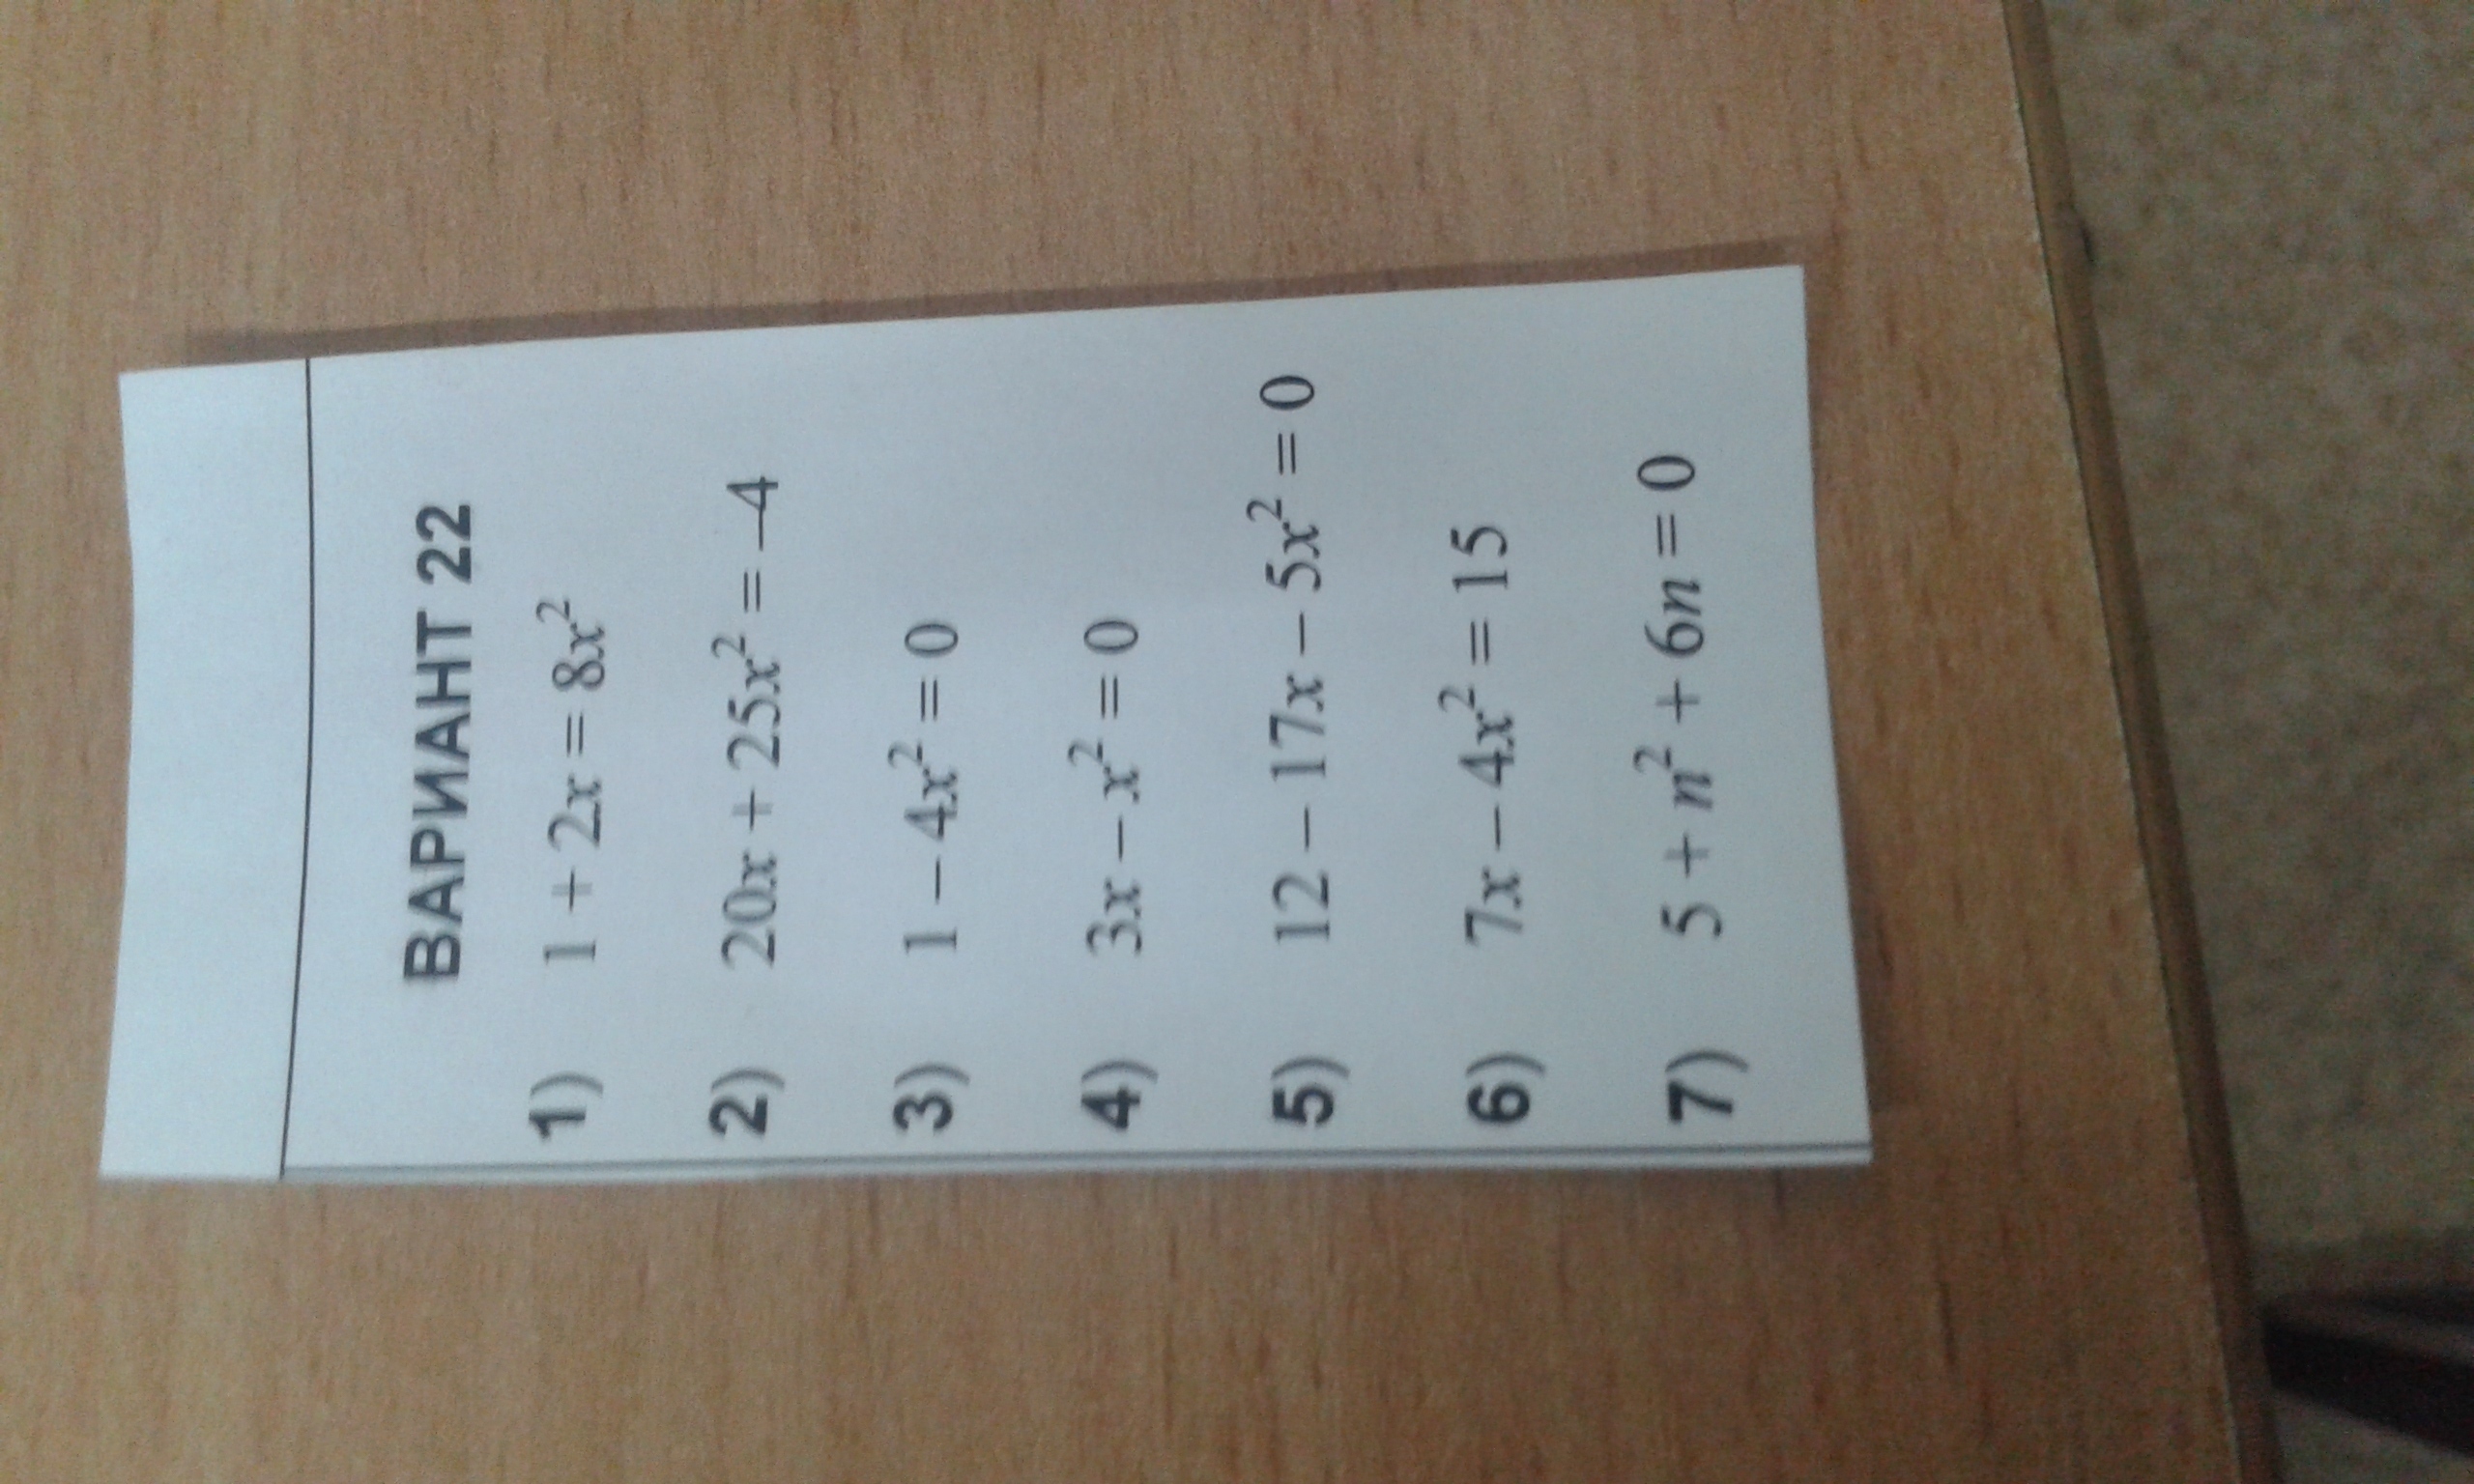 ВАРИАНТ 22
1) 1 + 2x = 8x²
2) 20x + 25x² = –4
3) 1 – 4x² = 0
4) 3x – x² = 0
5) 12 – 17x – 5x² = 0
6) 7x – 4x² = 15
7) 5 + n² + 6n = 0